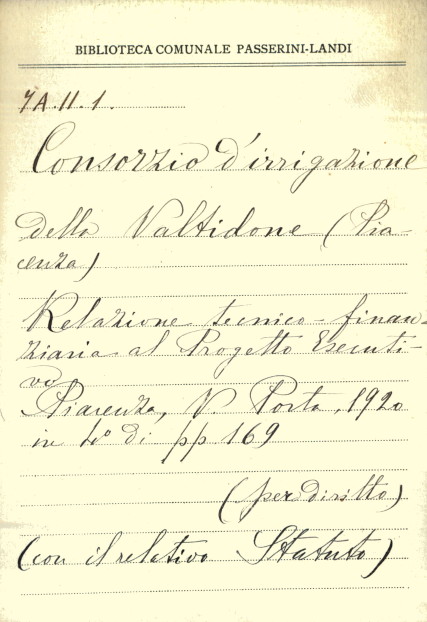 BIBLIOTECA COMUNALE PASSERINI-LANDI
7A.II.1.
Consorzio d'irrigazione
della Valtidone (Pia-
cenza)
Relazione tecnico-finan-
ziaria al Progetto Esecuti-
vo
Piacenza, V. Porta, 1920
in 4º di pp 169
(per diritto)
(con il relativo Statuto)